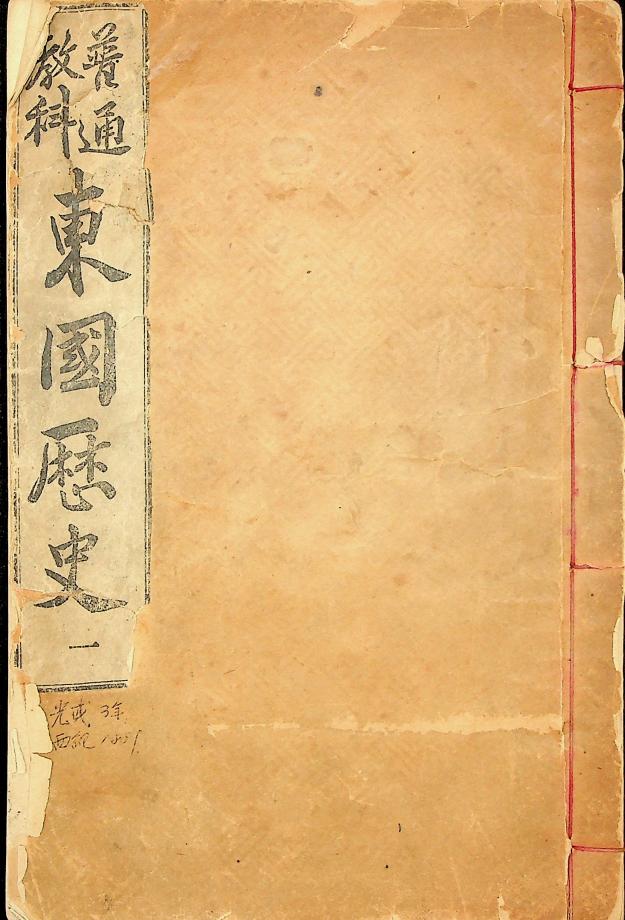 普通
教科
東國歷史
一
光武 3年
西紀